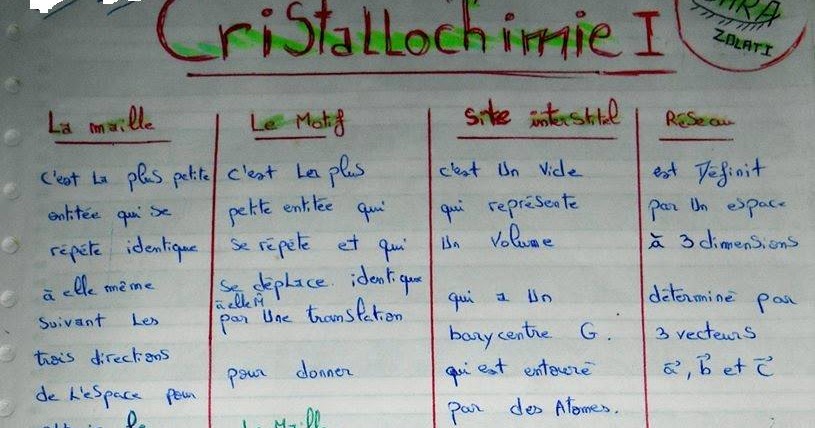 Cristallochimie I
ZOLATI
La maille
c'est La plus petite
entitée qui se
répéte identique
à elle même
Suivant Les
trois directions
de L'espace pour
Le Motif
c'est La plus
petite entitée qui
se répéte et qui
se déplace identique
à elle M̂
par Une translation
pour donner
La Maill
Site interstitel
c'est Un Vide
qui représente
Un Volume
qui a Un
barycentre G.
qui est entouré
par des Atomes.
Réseau
est Définit
par Un espace
à 3 dimensions
déterminé par
3 vecteurs
a⃗, b⃗ et c⃗